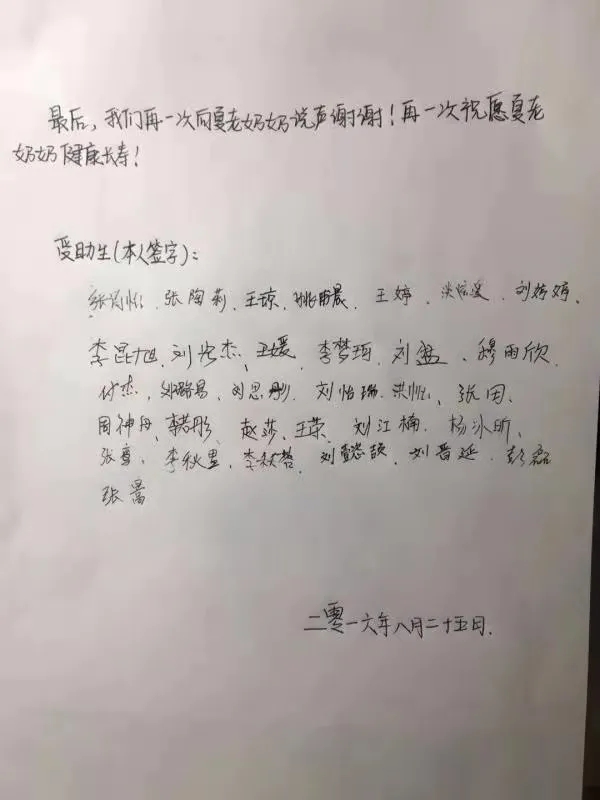 最后，我们再一次向夏老奶奶说声谢谢！再一次祝愿夏老
奶奶健康长寿！
受助生（本人签字）：
张陶莉、王琼、王婷、刘婷婷、
李昆旭、刘杰、王媛、李梦珂、刘、穆雨欣、
付杰、刘璐易、刘思彤、刘怡瑞、洪怡、张田、
周神丹、韩若彤、赵莎、王荣、刘江楠、杨冰昕、
张雪、李秋里、李秋蓉、刘懿颉、刘晋延、彭磊
张暠
二零一六年八月二十五日.